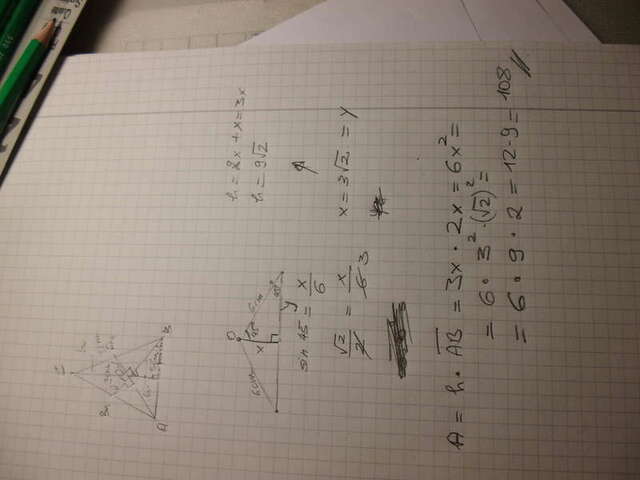 h = 2x + x = 3x
h = 9√2
sin 45 = x/6
√2/2 = x/6 3
x = 3√2 = y
A = h · AB = 3x · 2x = 6x² =
= 6 · 3² · (√2)² =
= 6 · 9 · 2 = 12 · 9 = 108